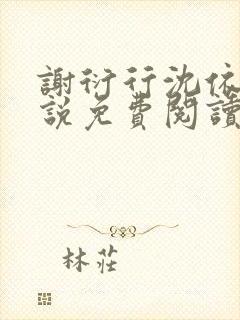 謝衍行沈依
說免費閱讀
林莊